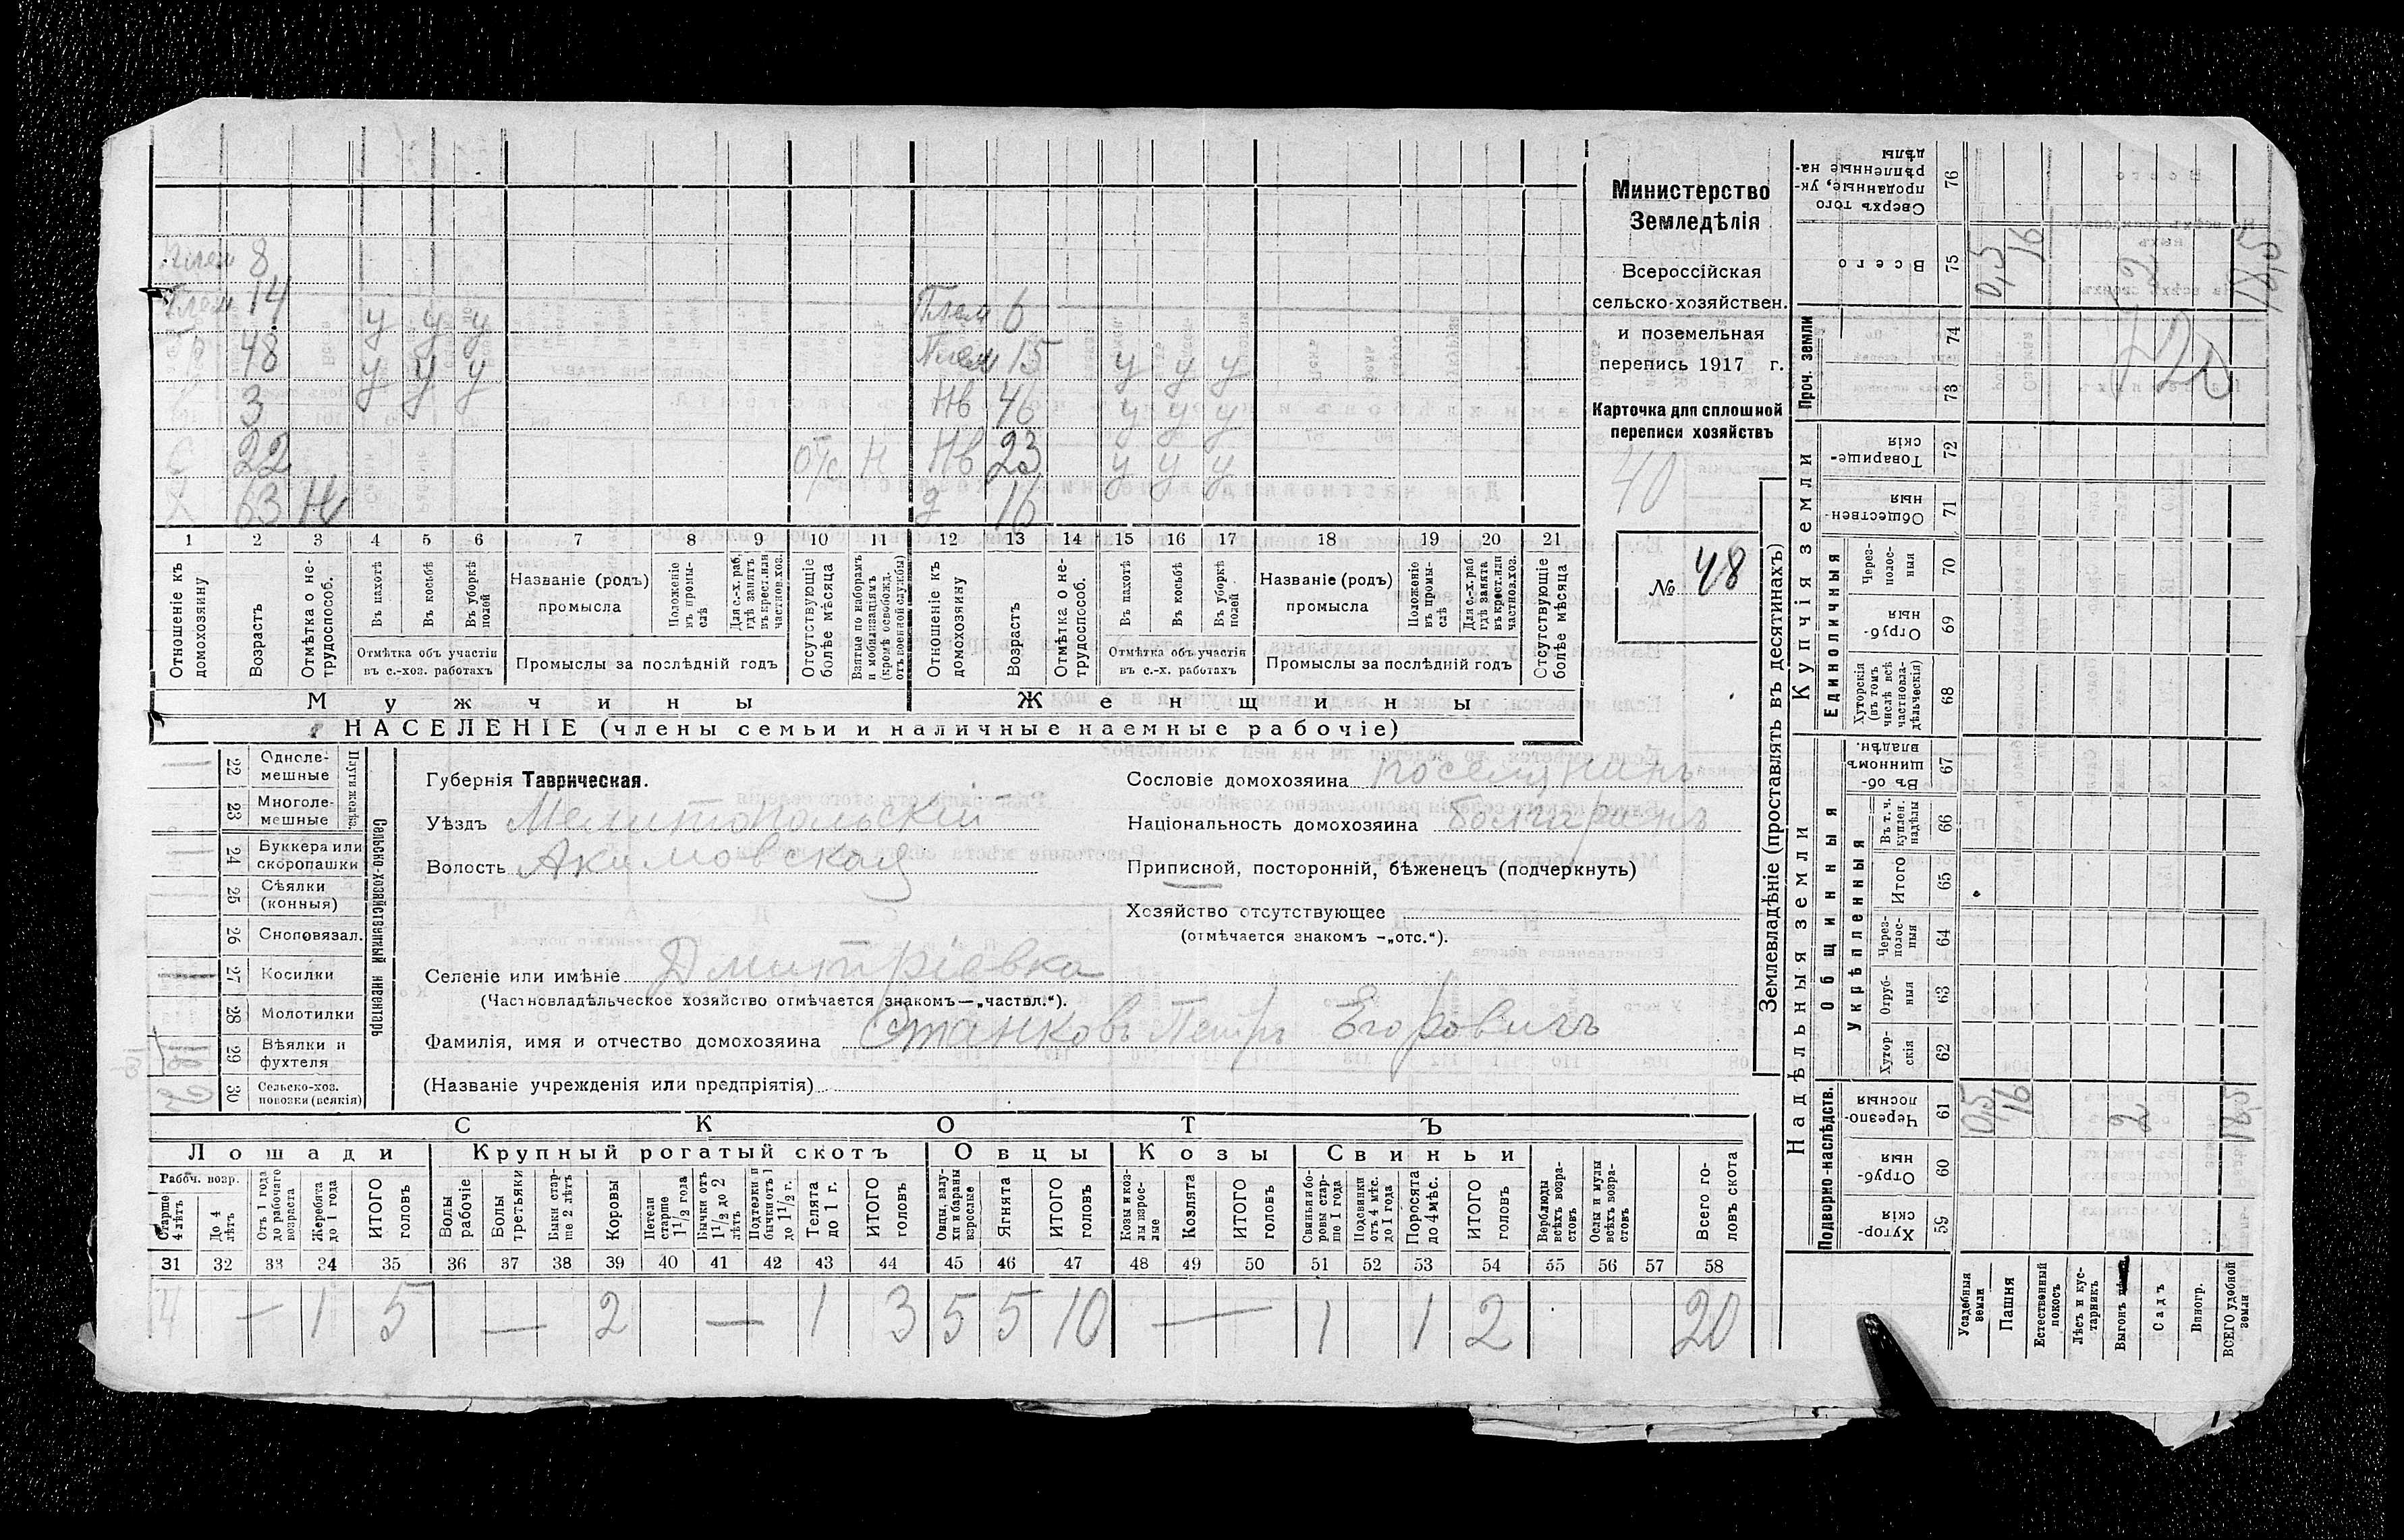 Плем 8
Плем 14 у у у
Плем 6
Б 48 у у у
Плем 15 у у у
3
Нв 46 у у у
С 22 отс Н
Нв 23 у у у
Х 63 Н
д 16
1 2 3 4 5 6 7 8 9 10 11 12 13 14 15 16 17 18 19 20 21
Отношеніе къ домохозяину
Возрастъ
Отмѣтка о не-трудоспособ.
Въ пахотѣ
Въ косьбѣ
Въ уборкѣ полей
Отмѣтка объ участіи въ с.-хоз. работахъ
Названіе (родъ) промысла
Положеніе въ промы-слѣ
Для с.-х. раб. гдѣ занятъ въ крест. или частнов. хоз.
Промыслы за послѣдній годъ
Отсутствующіе болѣе мѣсяца
Взятые по наборамъ и мобилизаціямъ (кромѣ освобожд. отъ военной службы)
Отношеніе къ домохозяину
Возрастъ
Отмѣтка о не-трудоспособ.
Въ пахотѣ
Въ косьбѣ
Въ уборкѣ полей
Отмѣтка объ участіи въ с.-х. работахъ
Названіе (родъ) промысла
Положеніе въ промы-слѣ
Для с.-х. раб. гдѣ занята въ крест. или частнов. хоз.
Промыслы за послѣдній годъ
Отсутствующіе болѣе мѣсяца
Мужчины Женщины
НАСЕЛЕНІЕ (члены семьи и наличные наемные рабочіе)
Министерство
Земледѣлія
Всероссійская
сельско-хозяйствен.
и поземельная
перепись 1917 г.
Карточка для сплошной
переписи хозяйствъ
40
№ 48
22 Однолемешные
23 Многолемешные
Плуги желѣз.
24 Буккера или скоропашки
25 Сѣялки (конныя)
26 Сноповязал.
27 Косилки
28 Молотилки
29 Вѣялки и фухтеля
30 Сельско-хоз. повозки (всякія)
Сельско-хозяйственный инвентарь
Губернія Таврическая.
Уѣздъ Мелитопольскій
Волость Акимовская
Сословіе домохозяина поселянинъ
Національность домохозяина болгаринъ
Приписной, посторонній, бѣженецъ (подчеркнуть)
Хозяйство отсутствующее
(отмѣчается знакомъ —„отс.“).
Селеніе или имѣніе Дмитріевка
(Частновладѣльческое хозяйство отмѣчается знакомъ—„частвл.“).
Фамилія, имя и отчество домохозяина Станковъ Петръ Егоровичъ
(Названіе учрежденія или предпріятія)
СКОТЪ
Лошади Крупный рогатый скотъ Овцы Козы Свиньи
Рабоч. возр.
Старше 4 лѣтъ
До 4 лѣтъ
Отъ 1 года до рабочаго возраста
Жеребята до 1 года
ИТОГО головъ
Волы рабочіе
Волы третьяки
Быки старше 2 лѣтъ
Коровы
Нетели старше 1 1/2 года
Бычки отъ 1 1/2 до 2 лѣтъ
Подтелки и бычки отъ 1 до 1 1/2 г.
Телята до 1 г.
ИТОГО головъ
Овцы, валухи и бараны взрослые
Ягнята
ИТОГО головъ
Козы и козлы взрослые
Козлята
ИТОГО головъ
Свиньи и боровы старше 1 года
Подсвинки отъ 4 мѣс. до 1 года
Поросята до 4 мѣс.
ИТОГО головъ
Верблюды всѣхъ возрастовъ
Ослы и мулы всѣхъ возрастовъ
Всего головъ скота
31 32 33 34 35 36 37 38 39 40 41 42 43 44 45 46 47 48 49 50 51 52 53 54 55 56 57 58
4 — 1 5 — 2 — 1 3 5 5 10 — 1 1 2 20
Землевладѣніе (проставлять въ десятинахъ)
Надѣльныя земли
Купчія земли
Проч. земли
Подворно-наслѣдств.
Общинныя
Укрѣпленныя
Единоличныя
Сверхъ того проданные, укрѣпленные надѣлы 76
Всего 75 0,5 16 2 18,5
74
73
Товарищескія 72
Общественныя 71
Черезполосныя 70
Отрубныя 69
Хуторскія (въ томъ числѣ всѣ частновладѣльческія) 68
Въ общинномъ владѣн. 67
Въ т. ч. куплен. надѣлы 66
Итого 65
Черезполосныя 64
Отрубныя 63
Хуторскія 62
Черезполосныя 61 0,5 16 2 18,5
Отрубныя 60
Хуторскія 59
Усадебная земля
Пашня
Естественный покосъ
Лѣсъ и кустарникъ
Выгонъ
Садъ
Виногр.
ВСЕГО удобной земли